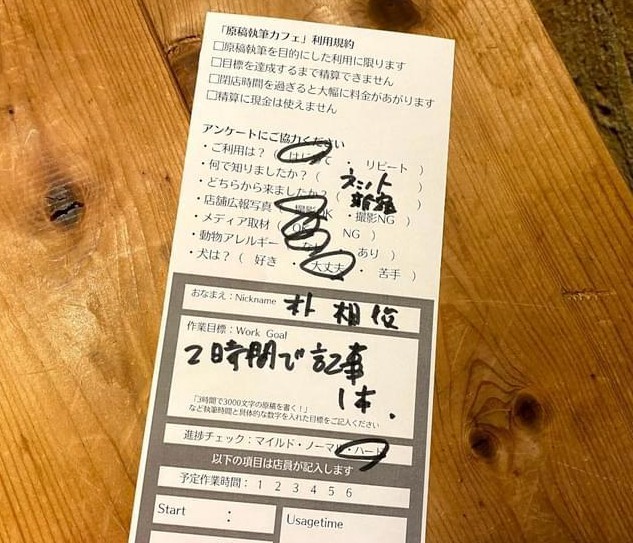 「原稿執筆カフェ」利用規約
□原稿執筆を目的にした利用に限ります
□目標を達成するまで精算できません
□閉店時間を過ぎると大幅に料金があがります
□精算に現金は使えません
アンケートにご協力ください
・ご利用は？（はじめて ・ リピート ）
・何で知りましたか？（ ネット ）
・どちらから来ましたか？（ 新宿 ）
・店舗広報写真（撮影OK ・撮影NG ）
・メディア取材（OK NG ）
・動物アレルギー（なし ・ あり ）
・犬は？（ 好き ・ 大丈夫 ・ 苦手 ）
おなまえ：Nickname 朴 相俊
作業目標：Work Goal
2時間で記事
1本.
「3時間で3000文字の原稿を書く！」
など執筆時間と具体的な数字を入れた目標をご記入ください
進捗チェック：マイルド・ノーマル・ハード
以下の項目は店員が記入します
予定作業時間： 1 2 3 4 5 6
Start :
Usagetime